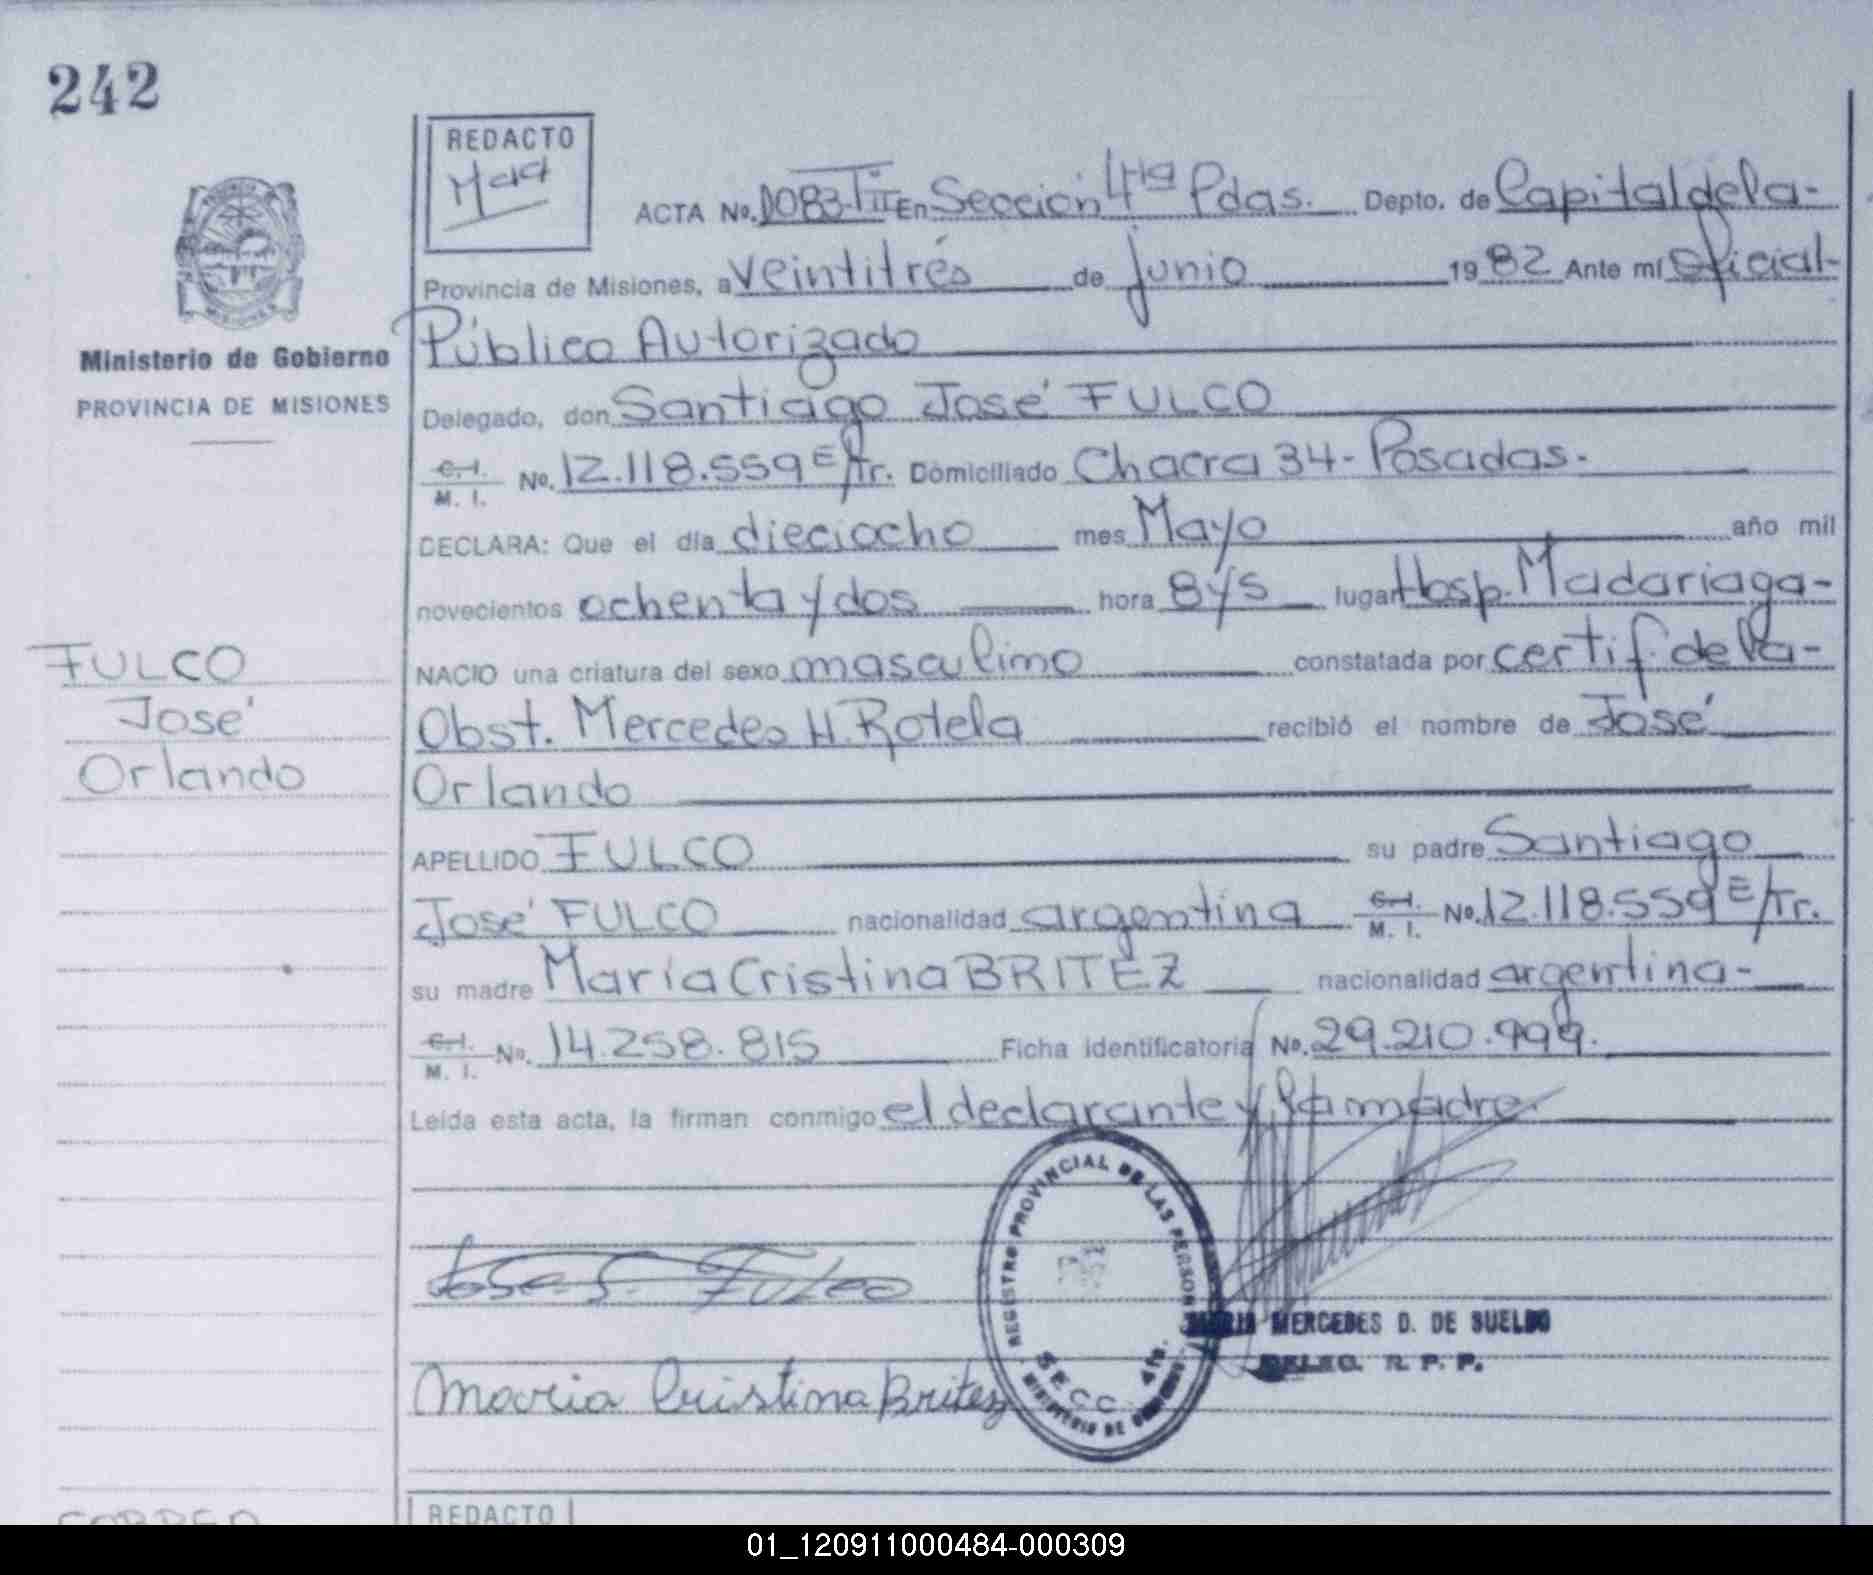 242
REDACTO
ACTA No. 1083-TIIEn Sección 4ta Pdas. Depto. de Capital de la-
Provincia de Misiones, a veintitrés de junio 1982 Ante mí Oficial-
Público Autorizado
Ministerio de Gobierno
PROVINCIA DE MISIONES
Delegado, don Santiago José FULCO
C.I. M. I. No. 12.118.559 E/Tr. Domiciliado Chacra 34- Posadas.
DECLARA: Que el día dieciocho mes Mayo año mil
novecientos ochenta y dos hora 8 y 5 lugar Hosp. Madariaga-
NACIO una criatura del sexo masculino constatada por certif. de la-
FULCO
José
Orlando
Obst. Mercedes H. Rotela recibió el nombre de José
Orlando
APELLIDO FULCO su padre Santiago
José FULCO nacionalidad argentina C.I. M. I. No. 12.118.559 E/Tr.
su madre María Cristina BRITEZ nacionalidad argentina-
C.I. M. I. No. 14.258.815 Ficha identificatoria No. 29.210.999.
Leída esta acta, la firman conmigo el declarante y la madre.
REGISTRO PROVINCIAL DE LAS PERSONAS
SECC. 4ta.
MINISTERIO DE GOBIERNO
Jose S. Fulco
MARIA MERCEDES D. DE SUELDO
DELEG. R. P. P.
Maria Cristina Britez
REDACTO
01_120911000484-000309